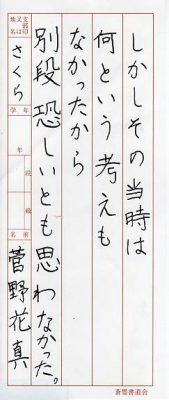 しかしその当時は
何という考えも
なかったから
別段恐しいとも思わなかった。
支部印又は地名
さくら
学年
年
段級
名前
菅野花真
蒼墨書道会